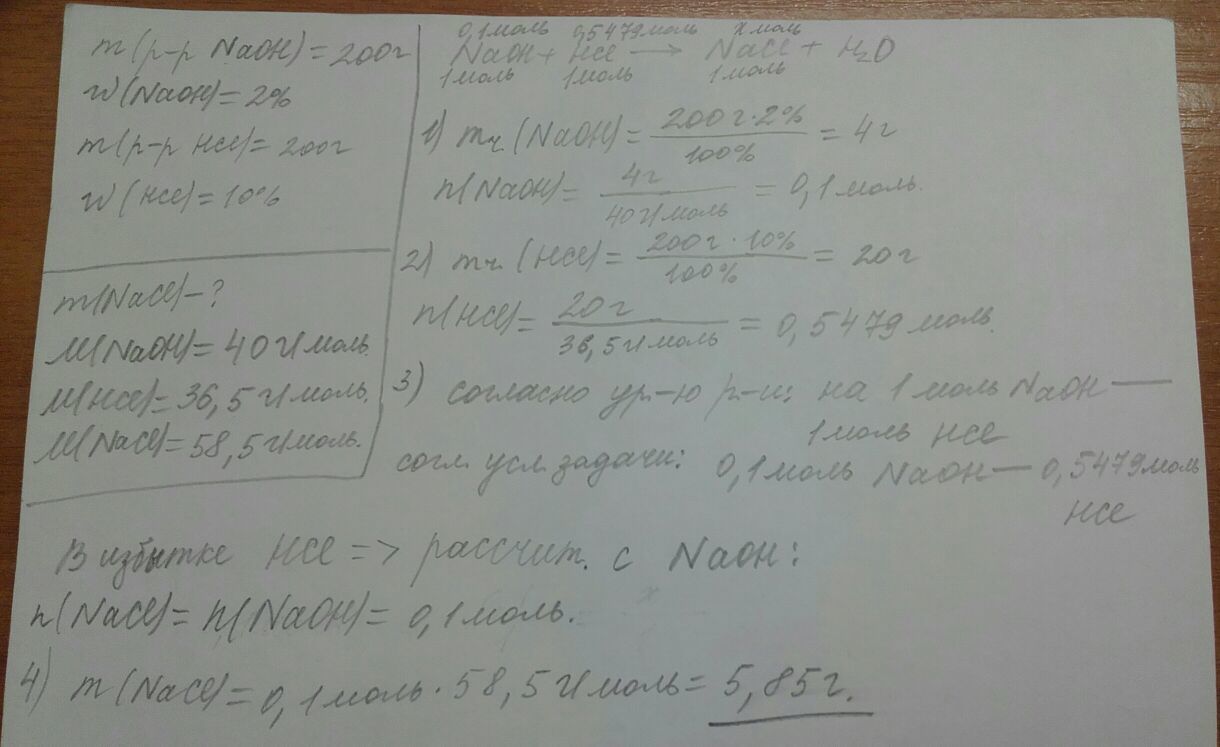 m(р-р NaOH)=200г
w(NaOH)=2%
m(р-р HCl)=200г
w(HCl)=10%
m(NaCl)-?
M(NaOH)=40г/моль.
M(HCl)=36,5г/моль.
M(NaCl)=58,5г/моль.
0,1моль 0,5479моль x моль
NaOH + HCl → NaCl + H₂O
1моль 1моль 1моль
1) mч.(NaOH)= 200г·2% / 100% = 4г
n(NaOH)= 4г / 40г/моль = 0,1моль.
2) mч.(HCl)= 200г·10% / 100% = 20г
n(HCl)= 20г / 36,5г/моль = 0,5479моль.
3) согласно ур-ю р-и: на 1 моль NaOH —
1моль HCl
согл. усл. задачи: 0,1моль NaOH — 0,5479моль
HCl
В избытке HCl => рассчит. с NaOH:
n(NaCl)= n(NaOH)= 0,1моль.
4) m(NaCl)= 0,1моль·58,5г/моль= 5,85г.